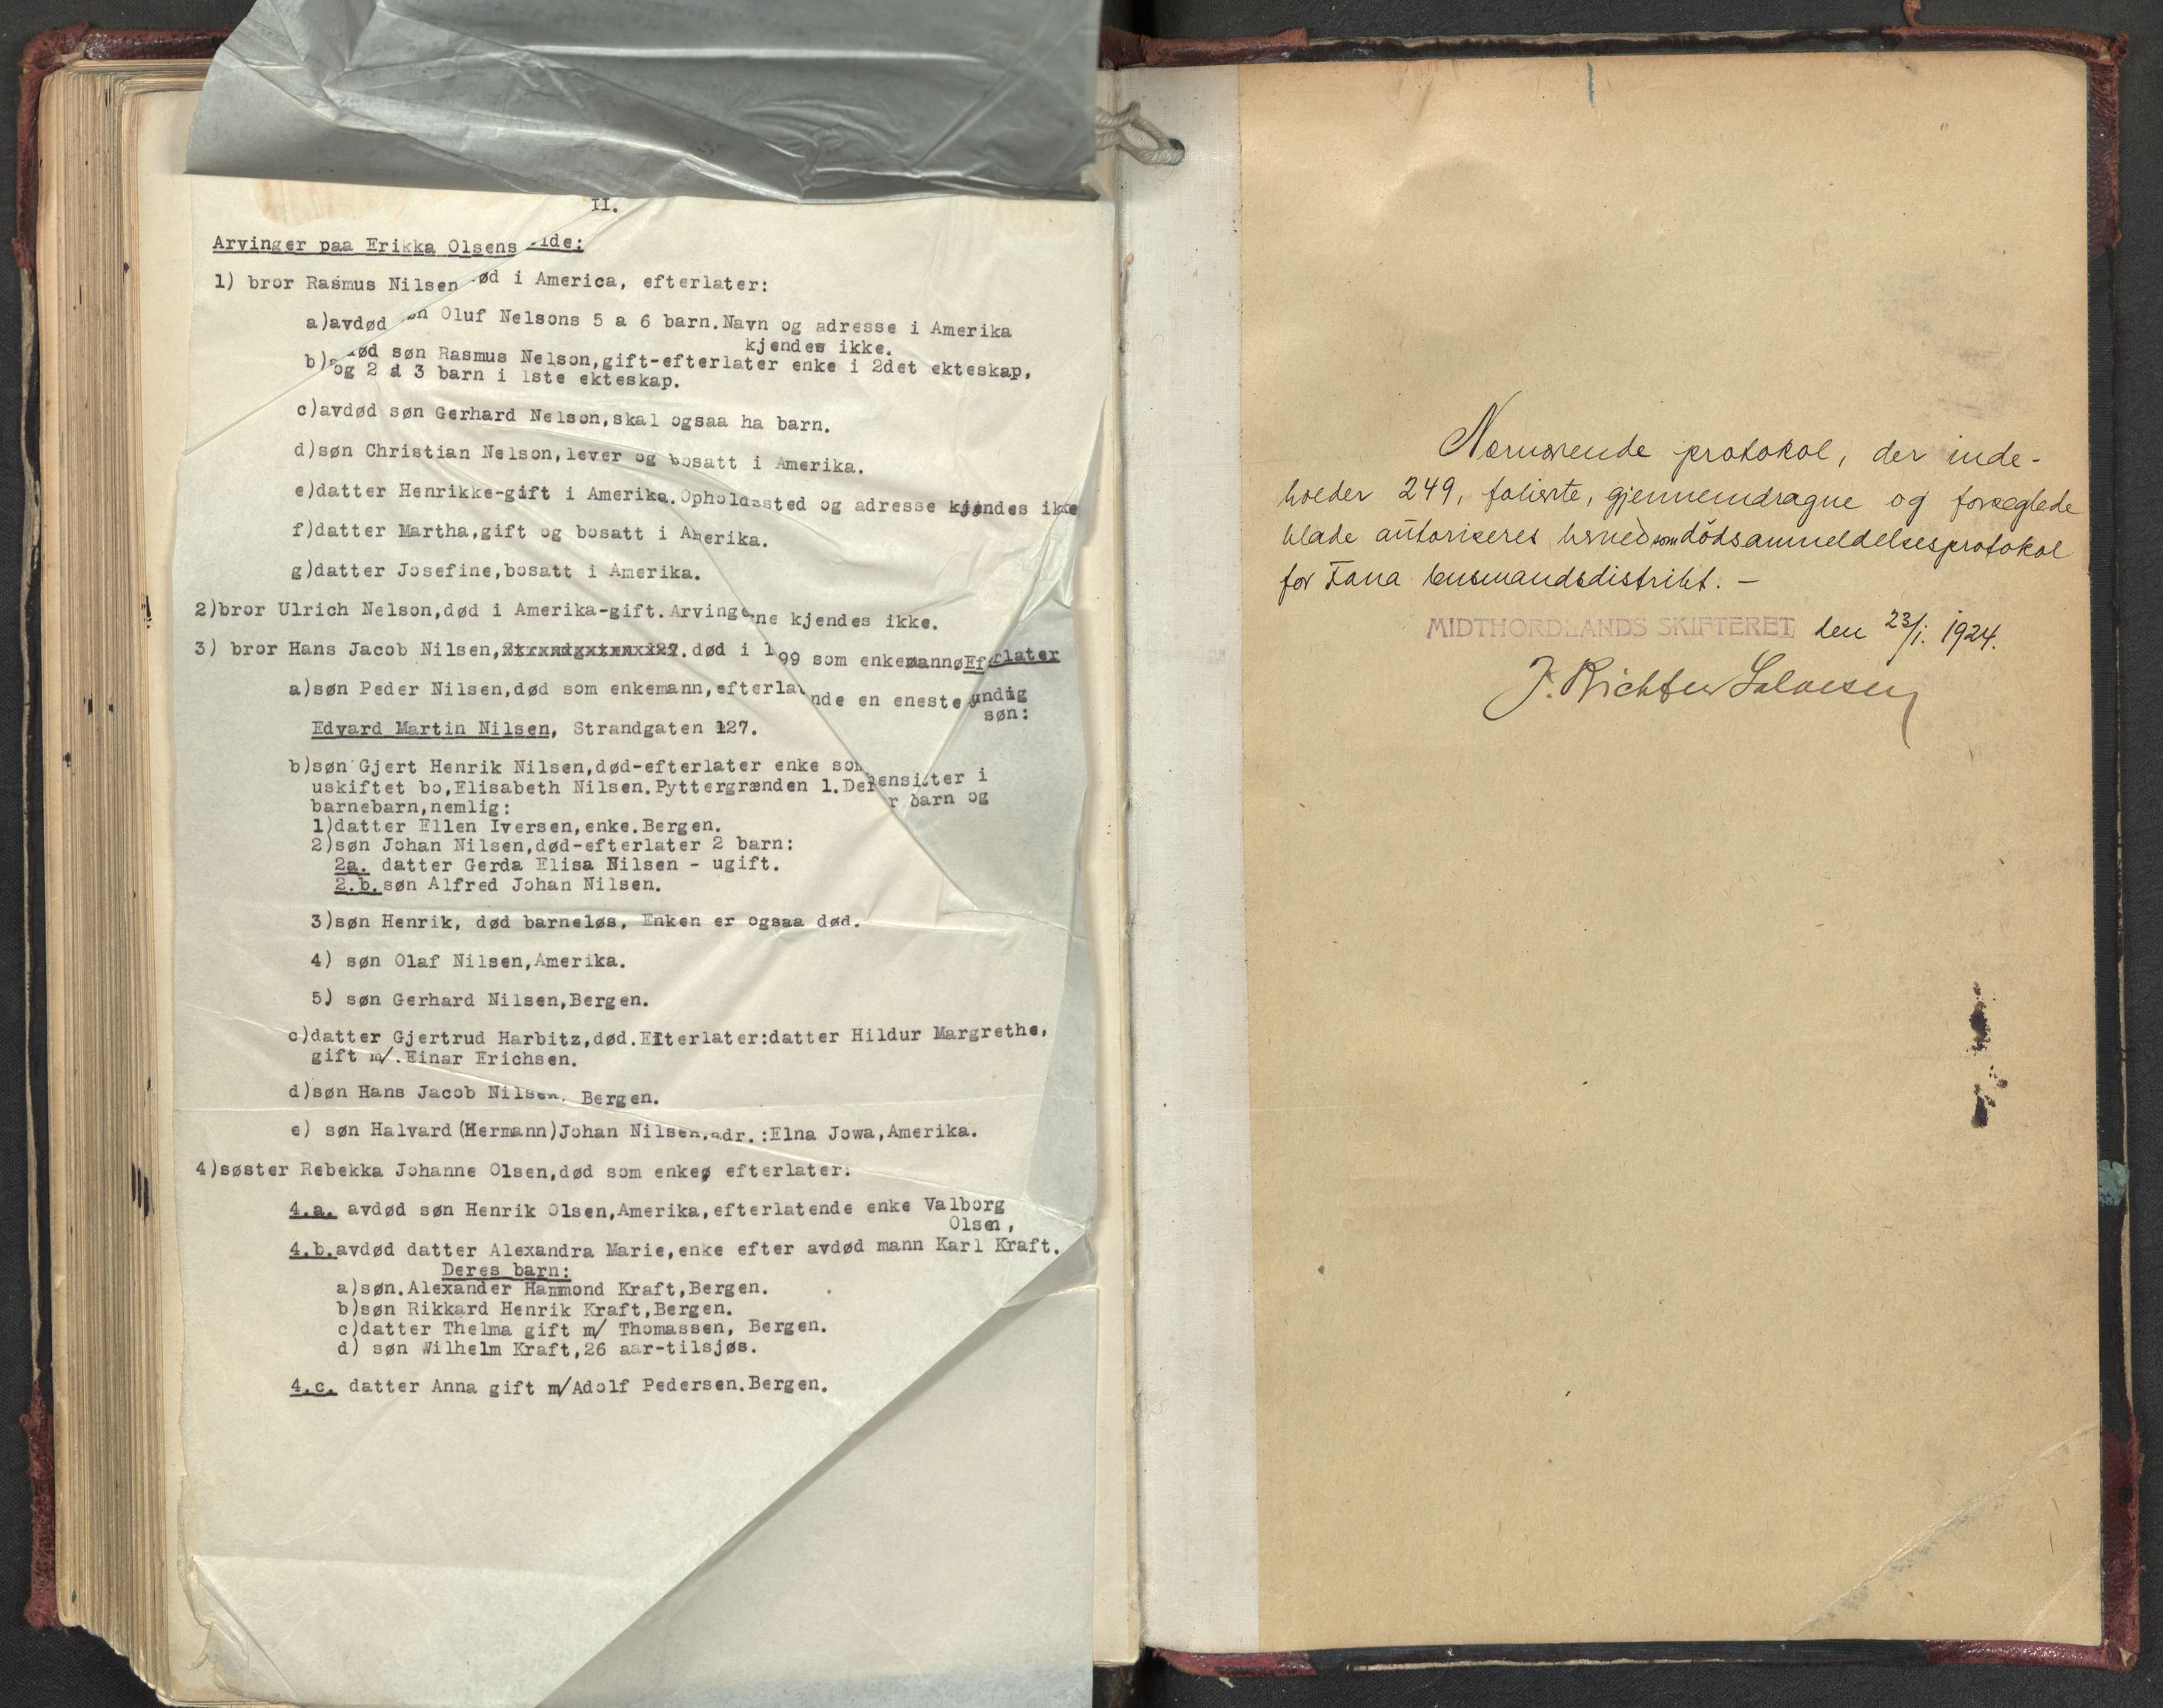 II.
Arvinger paa Erikka Olsens ide:
1) bror Rasmus Nilsen ød i America, efterlater:
a)avdød øn Oluf Nelsons 5 a 6 barn.Navn og adresse i Amerika
kjendes ikke.
b) ød søn Rasmus Nelson,gift-efterlater enke i 2det ekteskap,
og 2 a 3 barn i 1ste ekteskap.
c)avdød søn Gerhard Nelson,skal ogsaa ha barn.
d)søn Christian Nelson,lever og bosatt i Amerika.
e)datter Henrikke-gift i Amerika.Opholdssted og adresse kjendes ikke
f)datter Martha,gift og bosatt i Amerika.
g)datter Josefine,bosatt i Amerika.
2)bror Ulrich Nelson,død i Amerika-gift.Arvingene kjendes ikke.
3) bror Hans Jacob Nilsen, død i 1 99 som enkemann Efterlater
a)søn Peder Nilsen,død som enkemann,efterla nde en eneste yndig
søn:
Edvard Martin Nilsen, Strandgaten 127.
b)søn Gjert Henrik Nilsen,død-efterlater enke som ensitter i
uskiftet bo,Elisabeth Nilsen.Pyttergrænden 1.De r barn og
barnebarn,nemlig:
1)datter Ellen Iversen,enke.Bergen.
2)søn Johan Nilsen,død-efterlater 2 barn:
2a. datter Gerda Elisa Nilsen - ugift.
2.b.søn Alfred Johan Nilsen.
3)søn Henrik, død barneløs, Enken er ogsaa død.
4) søn Olaf Nilsen,Amerika.
5) søn Gerhard Nilsen,Bergen.
c)datter Gjertrud Harbitz,død.Efterlater:datter Hildur Margrethe,
gift m/.Einar Erichsen.
d)søn Hans Jacob Nilsen, Bergen.
e) søn Halvard(Hermann)Johan Nilsen,adr.:Elna Jowa,Amerika.
4)søster Rebekka Johanne Olsen,død som enke, efterlater:
4.a. avdød søn Henrik Olsen,Amerika,efterlatende enke Valborg
Olsen,
4.b.avdød datter Alexandra Marie,enke efter avdød mann Karl Kraft.
Deres barn:
a)søn.Alexander Hammond Kraft,Bergen.
b)søn Rikkard Henrik Kraft,Bergen.
c)datter Thelma gift m/ Thomassen, Bergen.
d) søn Wilhelm Kraft,26 aar-tilsjøs.
4.c. datter Anna gift m/Adolf Pedersen.Bergen.
Nærværende protokol, der inde-
holder 249, folierte, gjennemdragne og forseglede
blade autoriseres herved som dödsanmeldelsesprotokol
for Fana lensmandsdistrikt. -
MIDTHORDLANDS SKIFTERET den 23/1. 1924.
J. Richter Salvesen